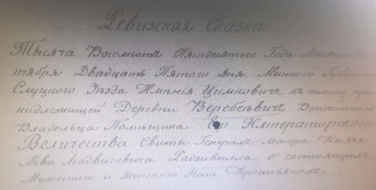 Ревизская Сказка.
Тысяча Восемьсот Пятидесятого Года Месяца Ок
тября Двадцать Пятого дня Минской Губернии
Слуцкого Уезда Имѣнія Цимковичъ къ оному при
надлежащей Деревни Вотчинного
Владѣльца Помѣщика Его Императорского
Величества Свиты Генералъ Маіора Князя
Льва Людвиговича Радзивилла о состоящихъ
Мужеского и Женского Пола Крестьянахъ